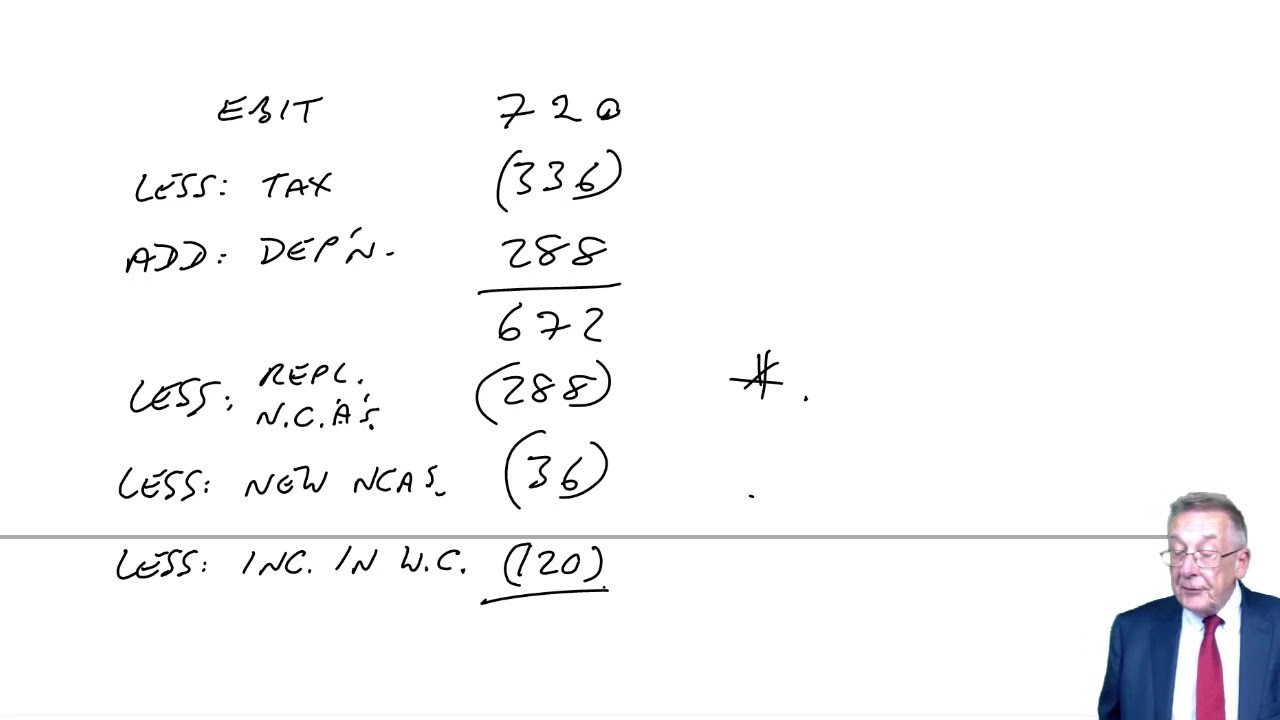 EBIT 720
LESS: TAX (336)
ADD: DEP'N. 288
672
LESS: REPL. N.C.A'S. (288) *.
LESS: NEW NCAS. (36)
LESS: INC. IN W.C. (120)